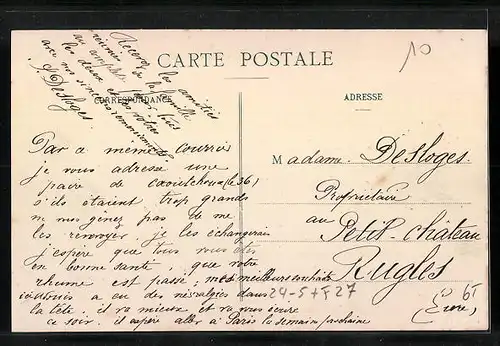 CARTE POSTALE
10
CORRESPONDANCE
ADRESSE
Recevez les amitiés
de la famille
les deux
avec nos
J. Desloges
Par ce même courrier
je vous adresse une
paire de caoutchoucs (le 36)
s'ils étaient trop grands
ne vous gênez pas de me
les renvoyer. je les échangerais
j'espère que vous vous êtes
en bonne santé, que votre
rhume est passé, mes meilleurs souhaits
a eu des névralgies dans
la tête. il va mieux et va vous écrire
ce soir. il espère aller à Paris la semaine prochaine
Madame Desloges
Propriétaire
au
Petit-château
Rugles
(Eure)
24-5+F27